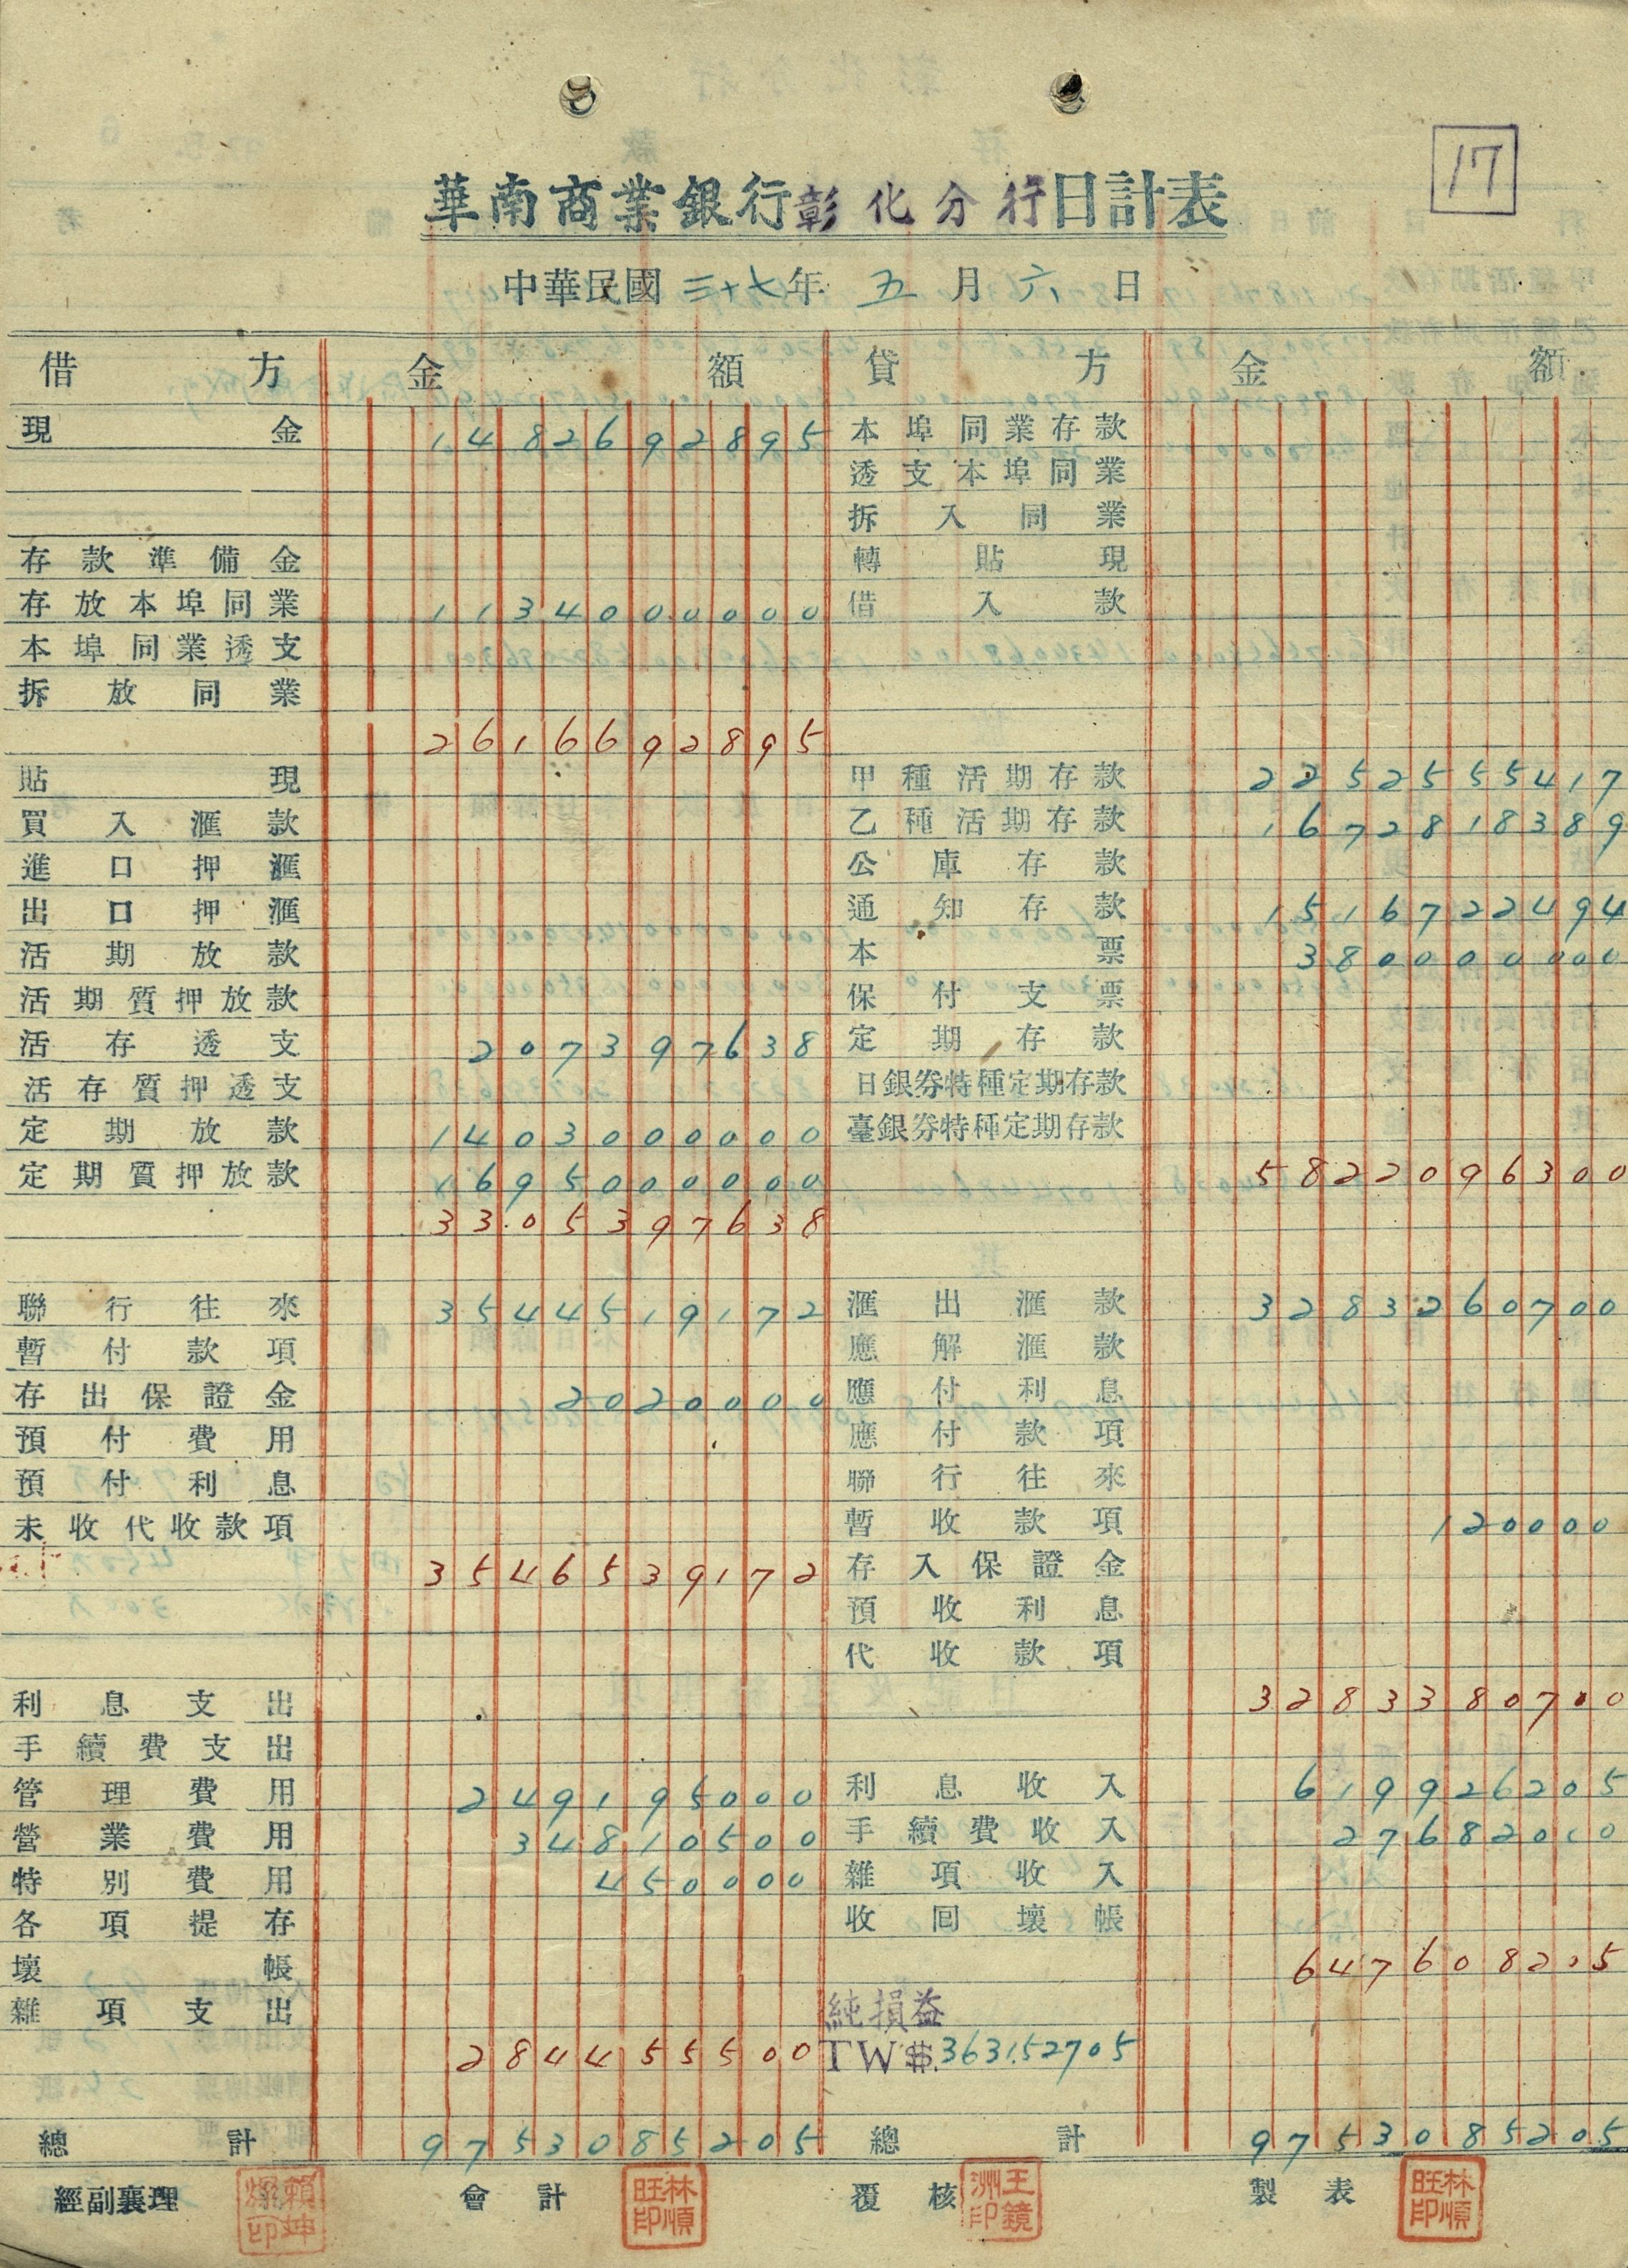 17
華南商業銀行彰化分行日計表
中華民國三十七年 五月六日
借方 金額 貸方 金額
現金 1482692895 本埠同業存款
透支本埠同業
拆入同業
存款準備金 轉貼現
存放本埠同業 1134000000 借入款
本埠同業透支
拆放同業
2616692895
貼現 甲種活期存款 2252555417
買入滙款 乙種活期存款 1672818389
進口押滙 公庫存款
出口押滙 通知存款 1516722494
活期放款 本票 380000000
活期質押放款 保付支票
活存透支 207397638 定期存款
活存質押透支 日銀券特種定期存款
定期放款 1403000000 臺銀券特種定期存款
定期質押放款 1695000000 5822096300
3305397638
聯行往來 3544519172 滙出滙款 3283260700
暫付款項 應解滙款
存出保證金 2020000 應付利息
預付費用 應付款項
預付利息 聯行往來
未收代收款項 暫收款項 120000
3546539172 存入保證金
預收利息
代收款項
利息支出 3283380700
手續費支出
管理費用 249195000 利息收入 619926205
營業費用 34810500 手續費收入 27682000
特別費用 450000 雜項收入
各項提存 收回壞帳
壞帳 647608205
雜項支出 純損益
284455500 TW$.363152705
總計 9753085205 總計 9753085205
經副襄理 賴坤燦印 會計 林順旺印 覆核 王鏡洲印 製表 林順旺印